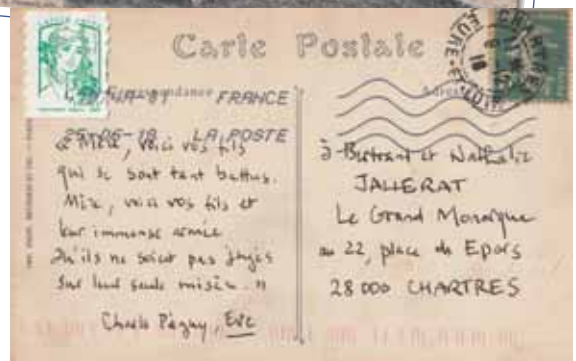 Carte Postale
Correspondance
FRANCE
25-06-18 LA POSTE
CHARTRES
EURE-ET-LOIR
« Mère, voici vos fils
qui se sont tant battus.
Mère, voici vos fils et
leur immense armée
Qu'ils ne soient pas jugés
Sur leur seule misère. »
Charles Péguy, Eve
à Bertrand et Nathalie
JALLERAT
Le Grand Monarque
au 22, place des Epars
28 000 CHARTRES